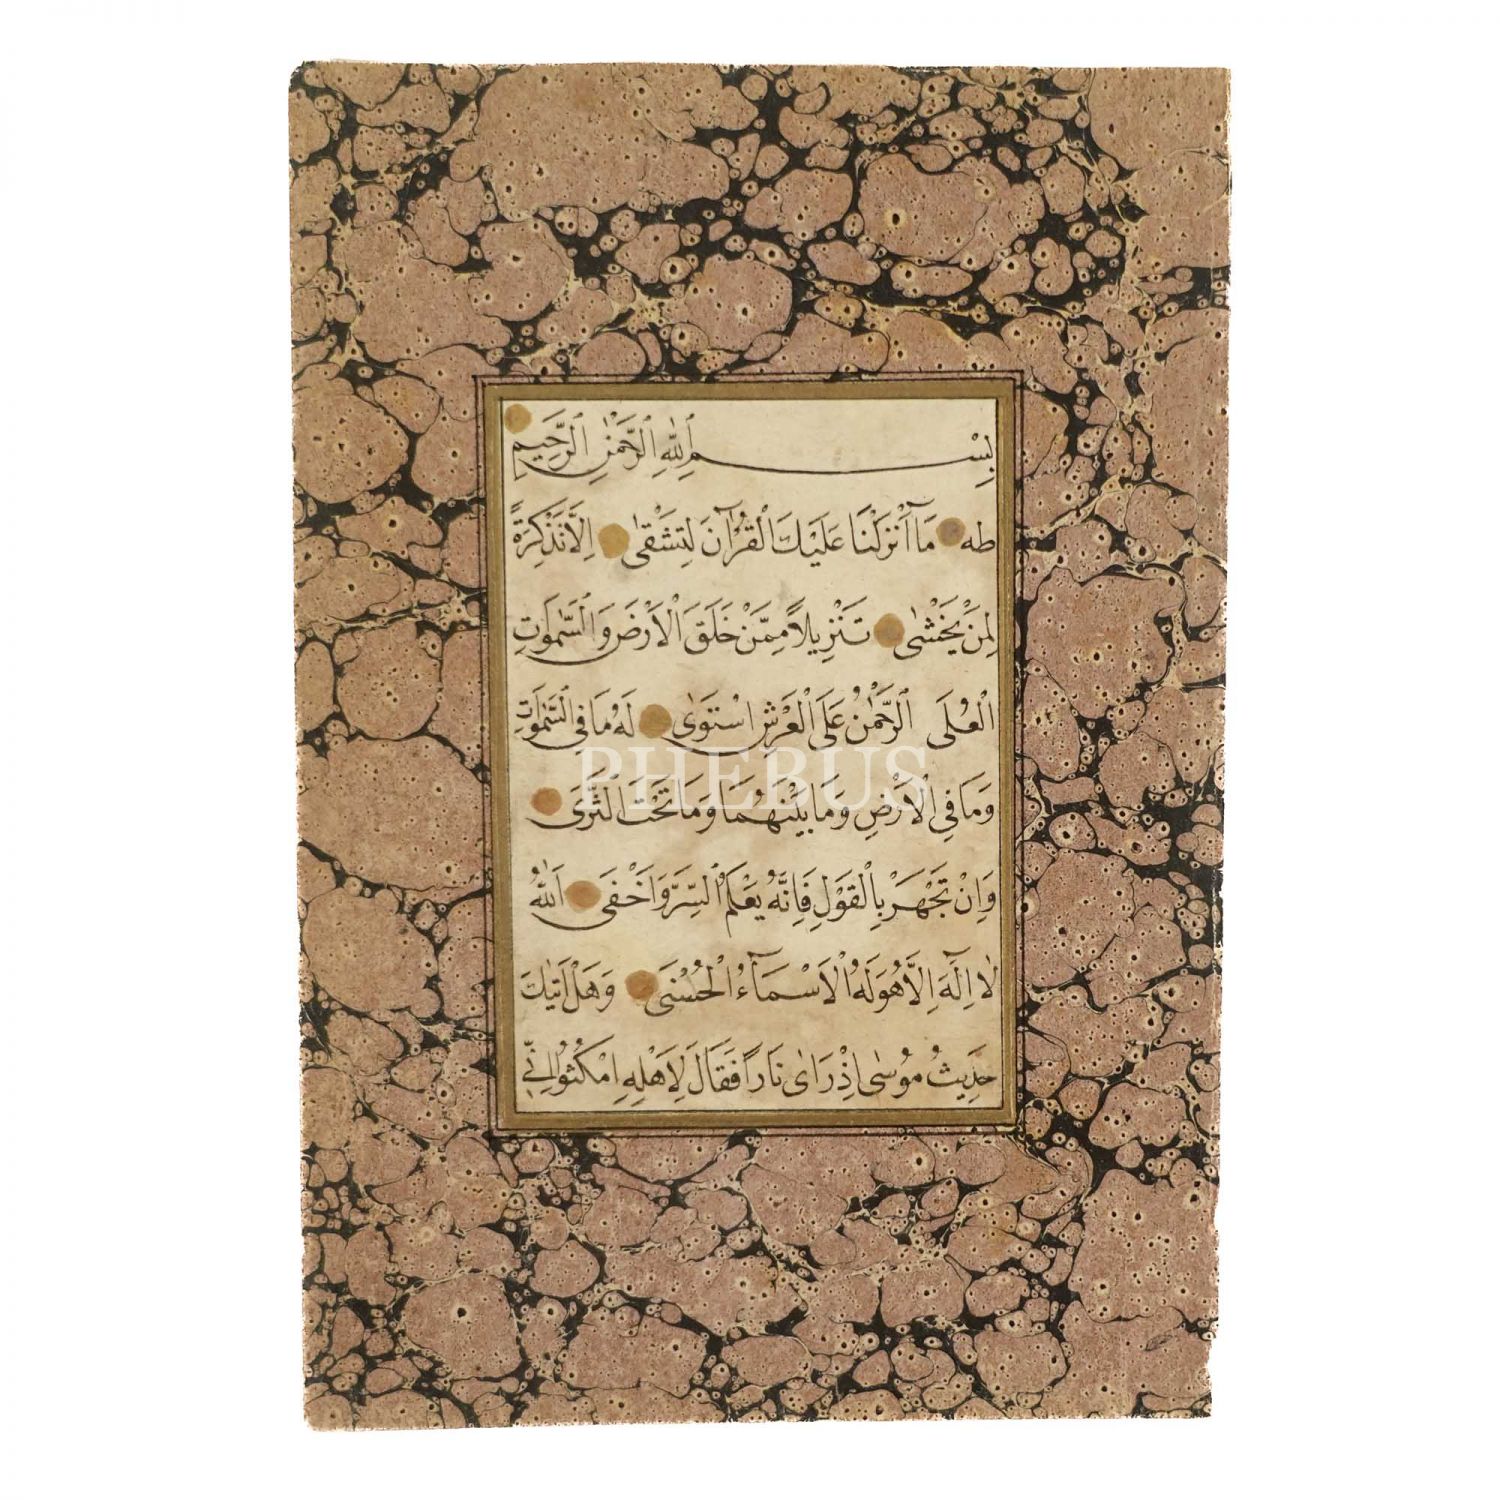 بِسْمِ اللّٰهِ الرَّحْمٰنِ الرَّحِيمِ
طه مَآ اَنْزَلْنَا عَلَيْكَ الْقُرْاٰنَ لِتَشْقٰى اِلَّا تَذْكِرَةً
لِمَنْ يَخْشٰى تَنْزِيلاً مِمَّنْ خَلَقَ الْاَرْضَ وَالسَّمٰوَاتِ
الْعُلَى اَلرَّحْمٰنُ عَلَى الْعَرْشِ اسْتَوٰى لَهُ مَا فِي السَّمٰوَاتِ
وَمَا فِي الْاَرْضِ وَمَا بَيْنَهُمَا وَمَا تَحْتَ الثَّرٰى
PHEBUS
وَاِنْ تَجْهَرْ بِالْقَوْلِ فَاِنَّهُ يَعْلَمُ السِّرَّ وَاَخْفَى اَللّٰهُ
لَا اِلٰهَ اِلَّا هُوَ لَهُ الْاَسْمَآءُ الْحُسْنٰى وَهَلْ اَتٰيكَ
حَدِيثُ مُوسٰى اِذْ رَاٰى نَاراً فَقَالَ لِاَهْلِهِ امْكُثُوا اِنِّي